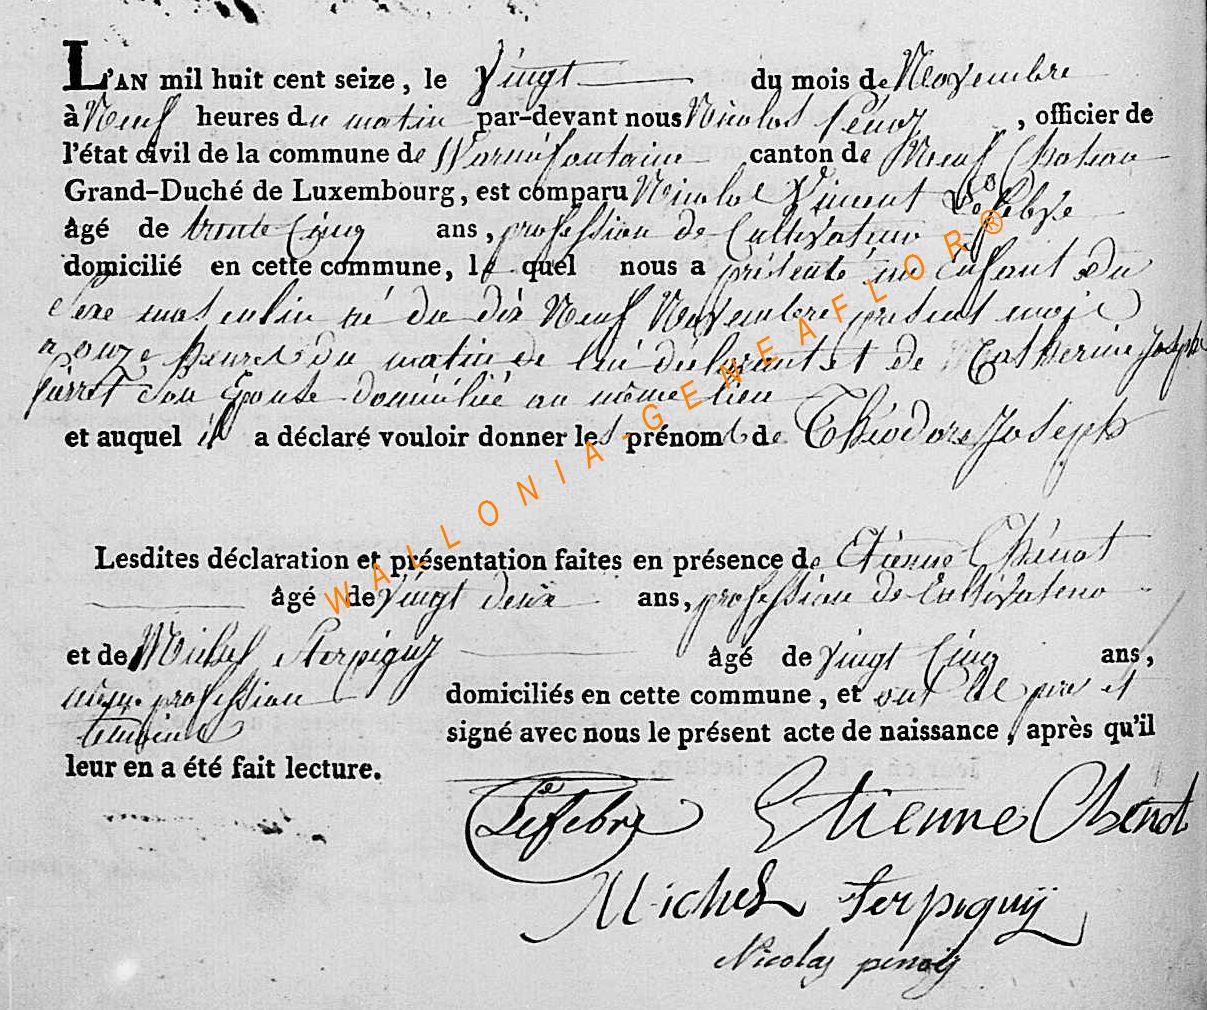 L'AN mil huit cent seize, le Vingt du mois de Novembre
à Neuf heures du matin par-devant nous Nicolas Pénoy, officier de
l'état civil de la commune de Warmifontaine canton de Neuf Chateau
Grand-Duché de Luxembourg, est comparu Nicolas Vincent Lefebve
âgé de trente Cinq ans, profession de Cultivateur
domicilié en cette commune, le quel nous a présenté un enfant du
sexe masculin né du dix Neuf Novembre présent mois
a onze heures du matin de lui déclarant et de Catherine Joseph
pierret son Epouse domiciliée au même lieu
et auquel il a déclaré vouloir donner les prénoms de Théodore Joseph
Lesdites déclaration et présentation faites en présence de Etienne Chénot
âgé de vingt deux ans, profession de Cultivateur
et de Michel Sterpigny âgé de vingt Cinq ans,
même profession domiciliés en cette commune, et ont le pere et
temoins signé avec nous le présent acte de naissance, après qu'il
leur en a été fait lecture.
Lefebve Etienne Chenot
Michel Serpiguij
Nicolas penoij
WALLONIA-GENEAFLOR®